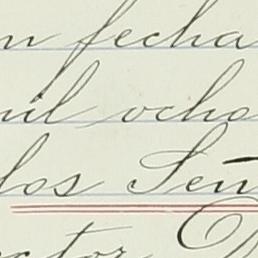 n fecha
nil ocho
los Señ
ctor D